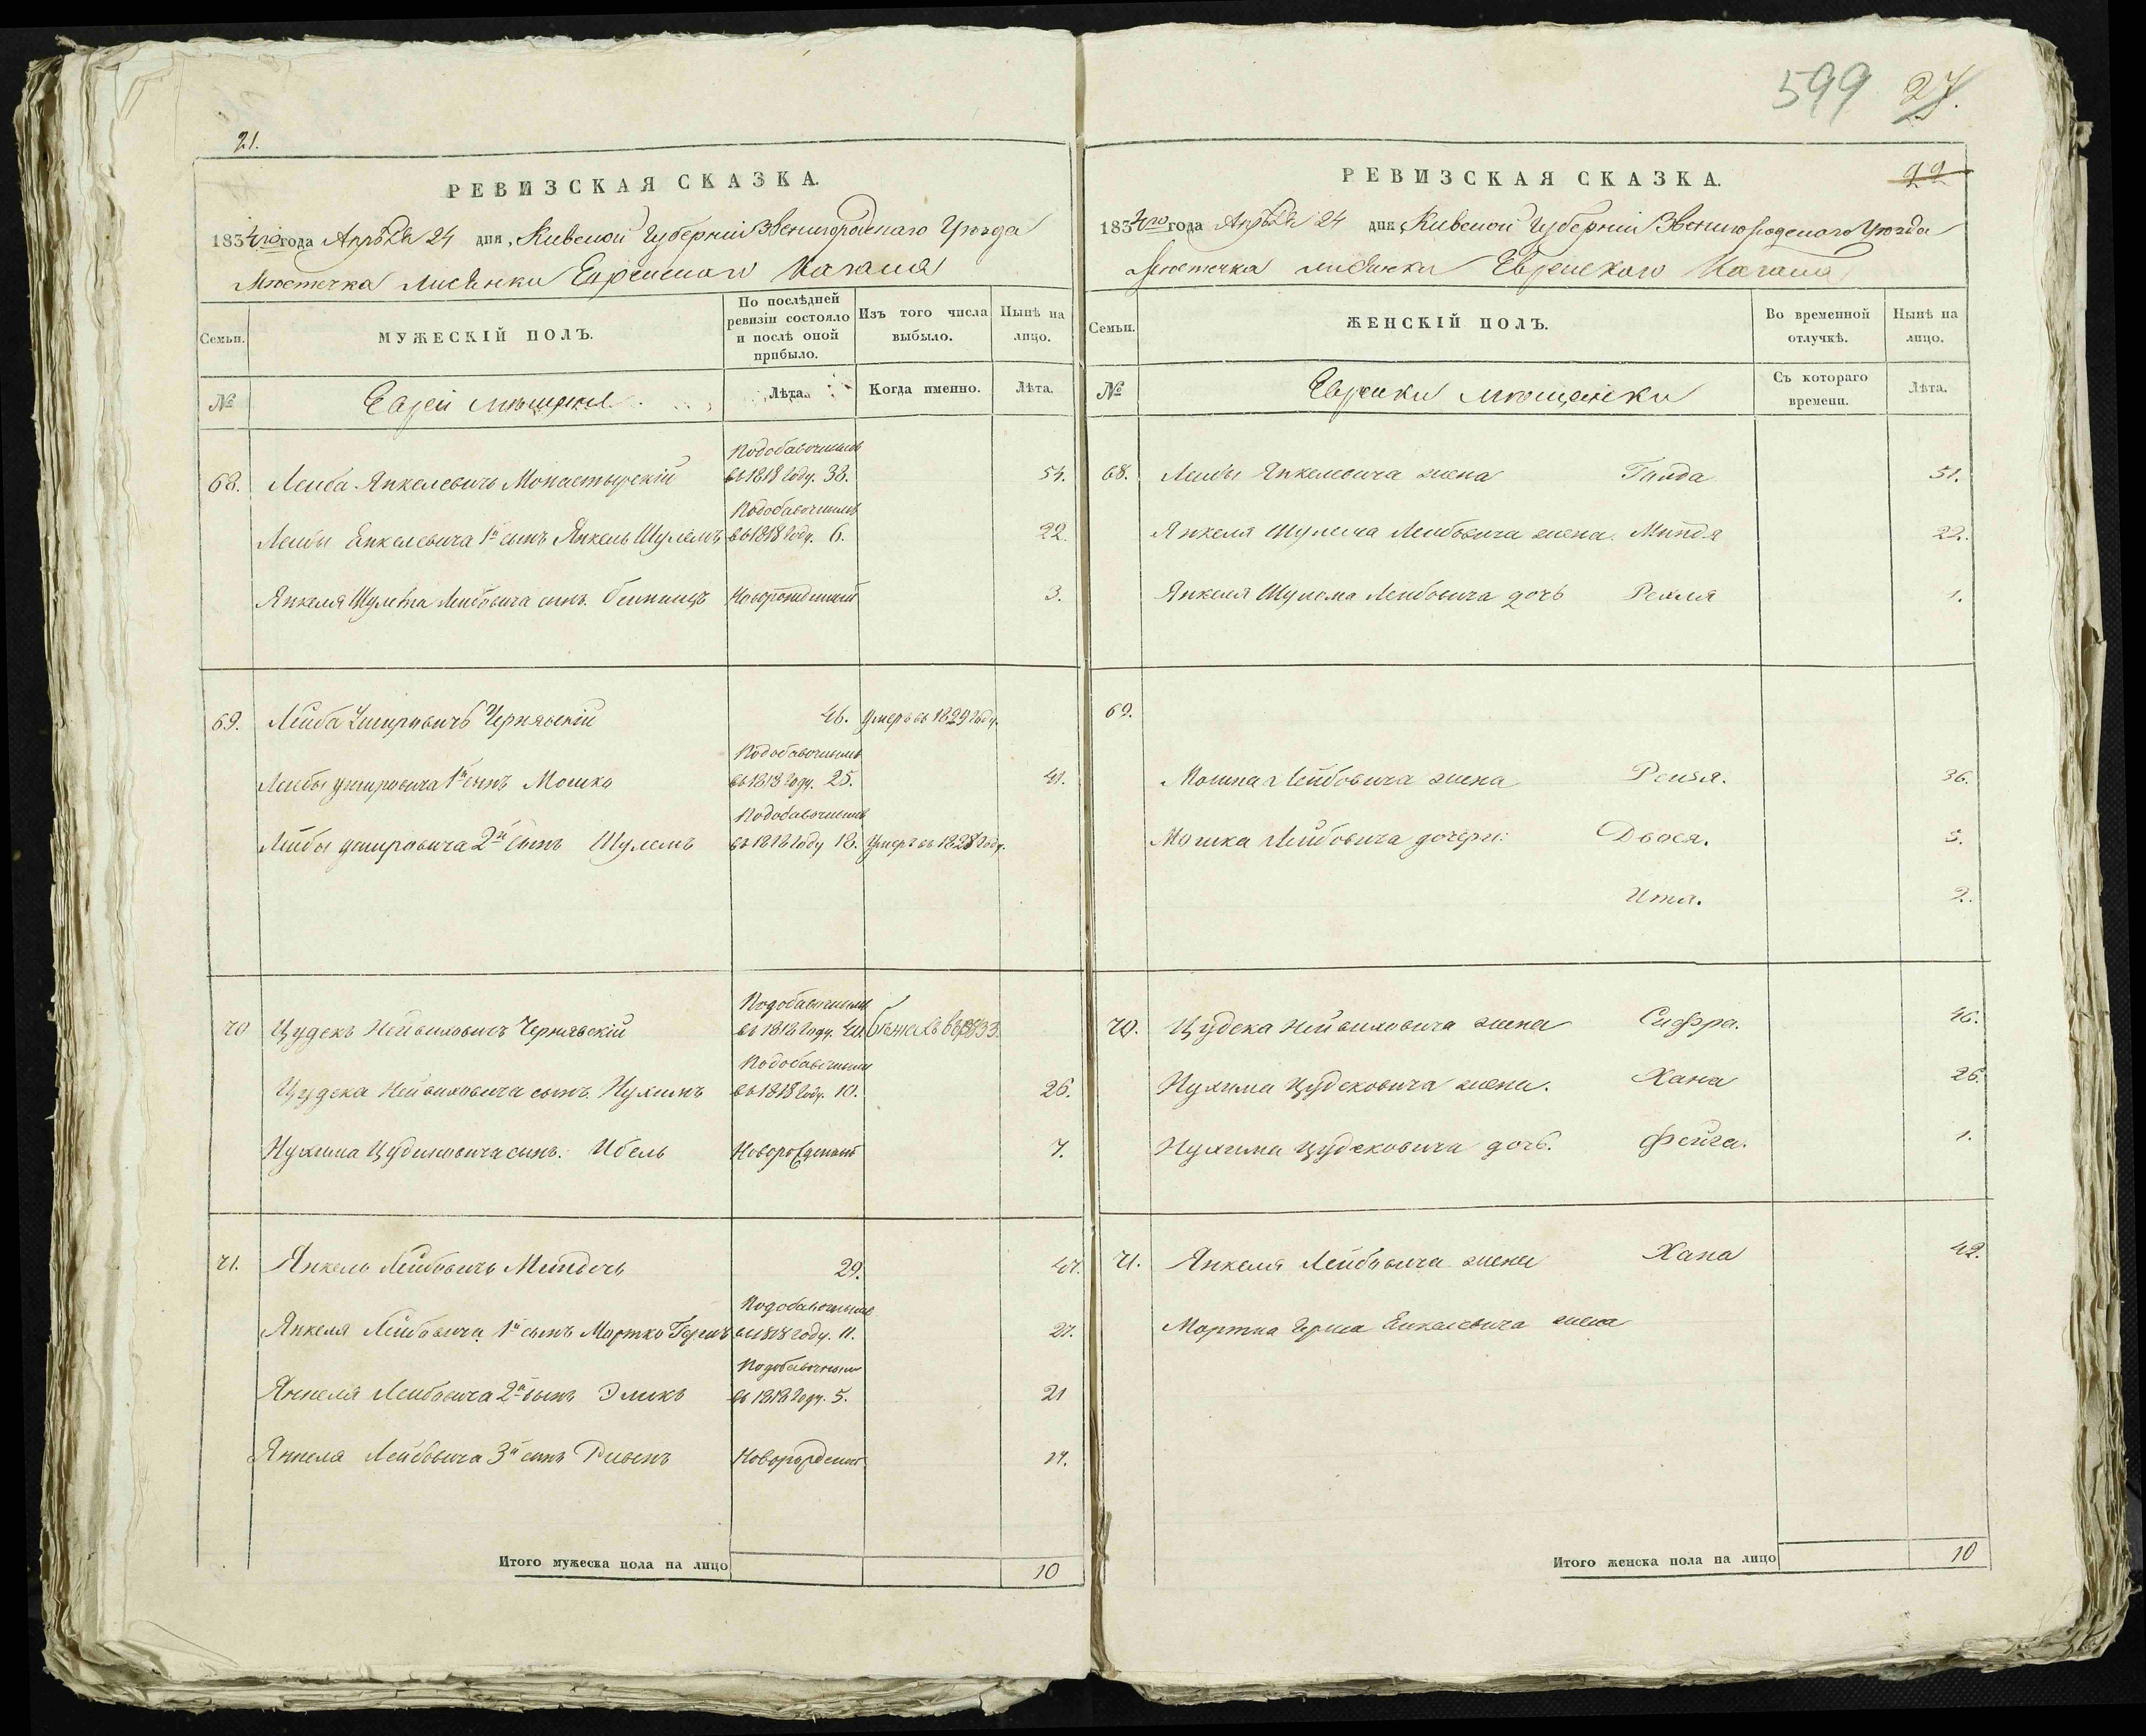 599 27.
21.
РЕВИЗСКАЯ СКАЗКА.
1834го года Апрѣля 24 дня, Киевской Губерніи Звенигородскаго Уѣзда
Мѣстечка Лисянки Еврейскаго Кагала
Семьи.
МУЖЕСКІЙ ПОЛЪ.
По послѣдней ревизіи состояло и послѣ оной прибыло.
Изъ того числа выбыло.
Нынѣ на лицо.
№
Евреи мѣщане
Лѣта.
Когда именно.
Лѣта.
Подобавочнымъ
68. Лейба Янкелевичъ Монастырскій въ 1818 году. 38. 54.
Подобавочнымъ
Лейбы Енкелевича 1й сынъ Янкель Шулемъ въ 1818 году. 6. 22.
Янкеля Шулема Лейбовича сынъ Новорожденный 3.
69. Лейба Черняескій 46. Умеръ въ 1829 году.
Подобавочнымъ
Лейбы 1й сынъ Мошко въ 1818 году. 25. 41.
Подобавочнымъ
Лейбы 2й сынъ Шулемъ въ 1818 году 18. Умеръ въ 1828 году.
Подобавочнымъ
70 Цудекъ Черняескій въ 1818 году. бежалъ въ 1833.
Подобавочнымъ
Цудека сынъ Нухимъ въ 1818 году. 10. 26.
Нухима Цудиковича сынъ. Ибель Новорожденный 7.
71. Янкель Лейбовичъ 29. 47.
Подобавочнымъ
Янкеля Лейбовича 1й сынъ Мортко Гершъ въ 1818 году. 11. 27.
Подобавочнымъ
Янкеля Лейбовича 2й сынъ Эликъ въ 1818 году. 5. 21
Янкеля Лейбовича 3й сынъ Рувенъ Новорожденный 14.
Итого мужеска пола на лицо 10
22
РЕВИЗСКАЯ СКАЗКА.
1834го года Апрѣля 24 дня, Киевской Губерніи Звенигородскаго Уѣзда
Мѣстечка Лисянки Еврейскаго Кагала
Семьи.
ЖЕНСКІЙ ПОЛЪ.
Во временной отлучкѣ.
Нынѣ на лицо.
№
Еврейки мѣщанки
Съ котораго времени.
Лѣта.
68. Лейбы Янкелевича жена 51.
Янкеля Шулема Лейбовича жена Миндя 22.
Янкеля Шулема Лейбовича дочь Рехля 1.
69.
Мошка Лейбовича жена Рейзя. 36.
Мошка Лейбовича дочери: Двося. 5.
Ита. 2.
70. Цудека жена Сифра. 46.
Нухима Цудековича жена. Хана 26.
Нухима Цудековича дочь. Фейга. 1.
71. Янкеля Лейбовича жена Хана 42.
Мортка Герша Енкелевича жена
Итого женска пола на лицо 10